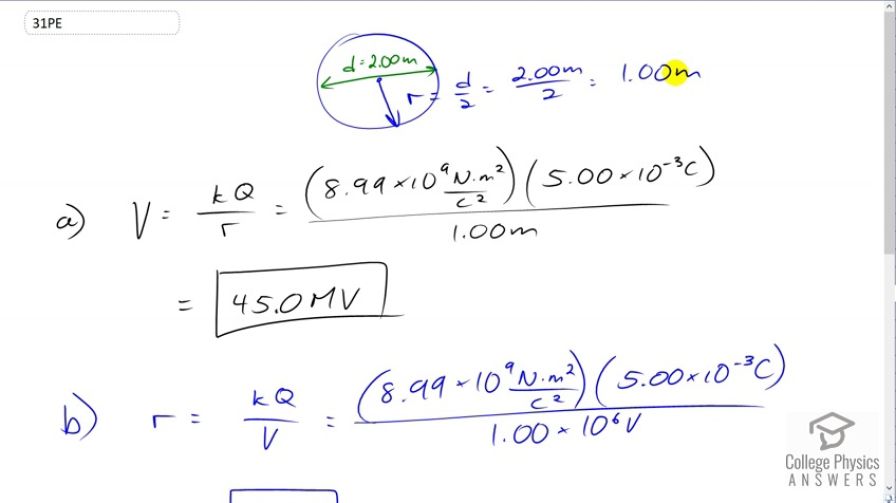 31PE
d = 2.00m
r = d/2 = 2.00m/2 = 1.00m
a) V = kQ/r = (8.99 × 10⁹ N·m²/C²)(5.00 × 10⁻³C)/1.00m
= 45.0MV
b) r = kQ/V = (8.99 × 10⁹ N·m²/C²)(5.00 × 10⁻³C)/1.00 × 10⁶V
College Physics
ANSWERS